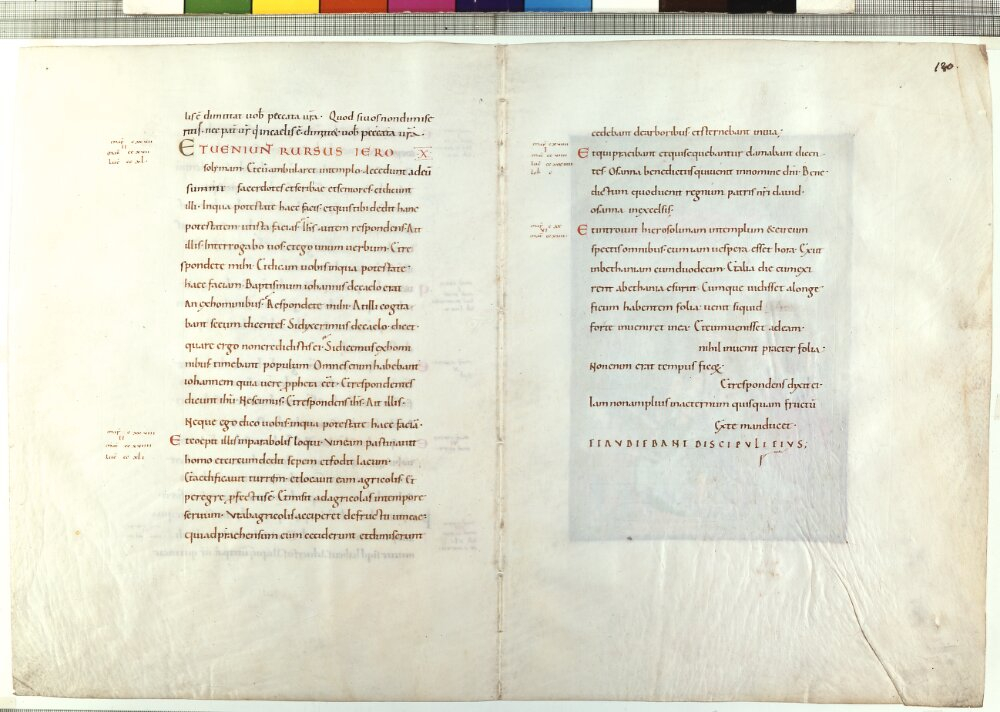 lis ē dimittat uob peccata ur̄a. Quod si uos non dimise
ritis. nec pat̄ ur̄ qui in caelis ē dimittet uob peccata ur̄a.
ET UENIUNT RURSUS IERO X
solymam. Et cū ambularet in templo. Accedunt ad eū
summi sacerdotes et scribae et seniores et dicunt
illi. In qua potestate haec facis. et quis tibi dedit hanc
potestatem ut ista facias. Ihs. autem respondens. Ait
illis. Interrogabo uos et ego unum uerbum. Et re
spondete mihi. Et dicam uobis in qua potestate
haec faciam. Baptismum iohannis de caelo erat
An ex hominibus. Respondete mihi. At illi cogita
bant secum dicentes. Si dixerimus de caelo. dicet.
quare ergo non credidistis ei. Si dicemus ex homi
nibus timebant populum. Omnes enim habebant
iohannem quia uere ppheta eēt. Et respondentes
dicunt ihū. Nescimus. Et respondens ihs. Ait illis.
Neque ego dico uobis in qua potestate haec faciā.
Et coepit illis in parabolis loqui. Vineam pastinauit
homo et circumdedit sepem et fodit lacum.
Et aedificauit turrem. et locauit eam agricolis. Et
peregre pfectus ē. Et misit ad agricolas in tempore
seruum. Vt ab agricolis acciperet de fructu uineae.
Qui adpraehensum eum ceciderunt et dimiserunt
180.
cedebant de arboribus et sternebant in uia.
Et qui praeibant et qui sequebantur clamabant dicen
tes. Osanna benedictus qui uenit in nomine dnī. Bene
dictum quod uenit regnum patris nr̄i dauid.
osanna in excelsis.
Et introiuit hierosolimam in templum & circum
spectis omnibus. cum iam uespera esset hora. Exiit
in bethaniam cum duodecim. Et alia die cum exi
rent a bethania esuriit. Cumque uidisset a longe
ficum habentem folia. uenit si quid
forte inueniret in ea. Et cum uenisset ad eam.
nihil inuenit praeter folia.
Non enim erat tempus ficoȝ.
Et respondens dixit ei.
Iam non amplius in aeternum quisquam fructū
Ex te manducet.
ET AUDIEBANT DISCIPULI EIUS;